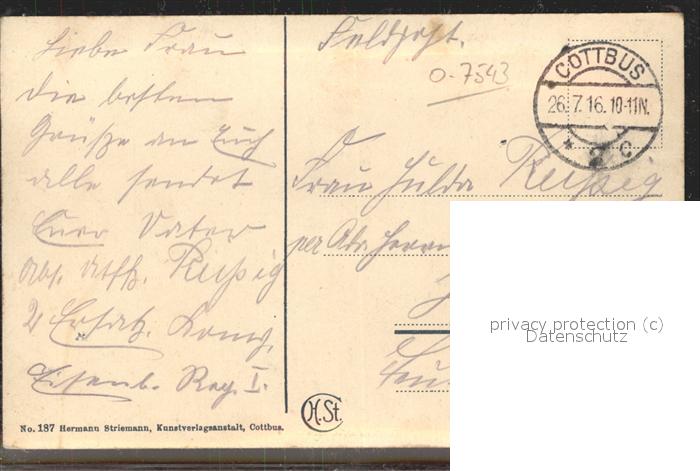 Liebe Frau
die besten
Grüße an Euch
alle sendet
Euer Vater
Abs. Reißig
2 Ersatz. Komp.
Eisenb. Reg. I.
No. 187 Hermann Striemann, Kunstverlagsanstalt, Cottbus.
H.St.
Feldpost.
0-7543
COTTBUS
26.7.16.10-11N.
* 2 c
Frau Hulda Reißig
per Adr. Herrn
privacy protection (c)
Datenschutz